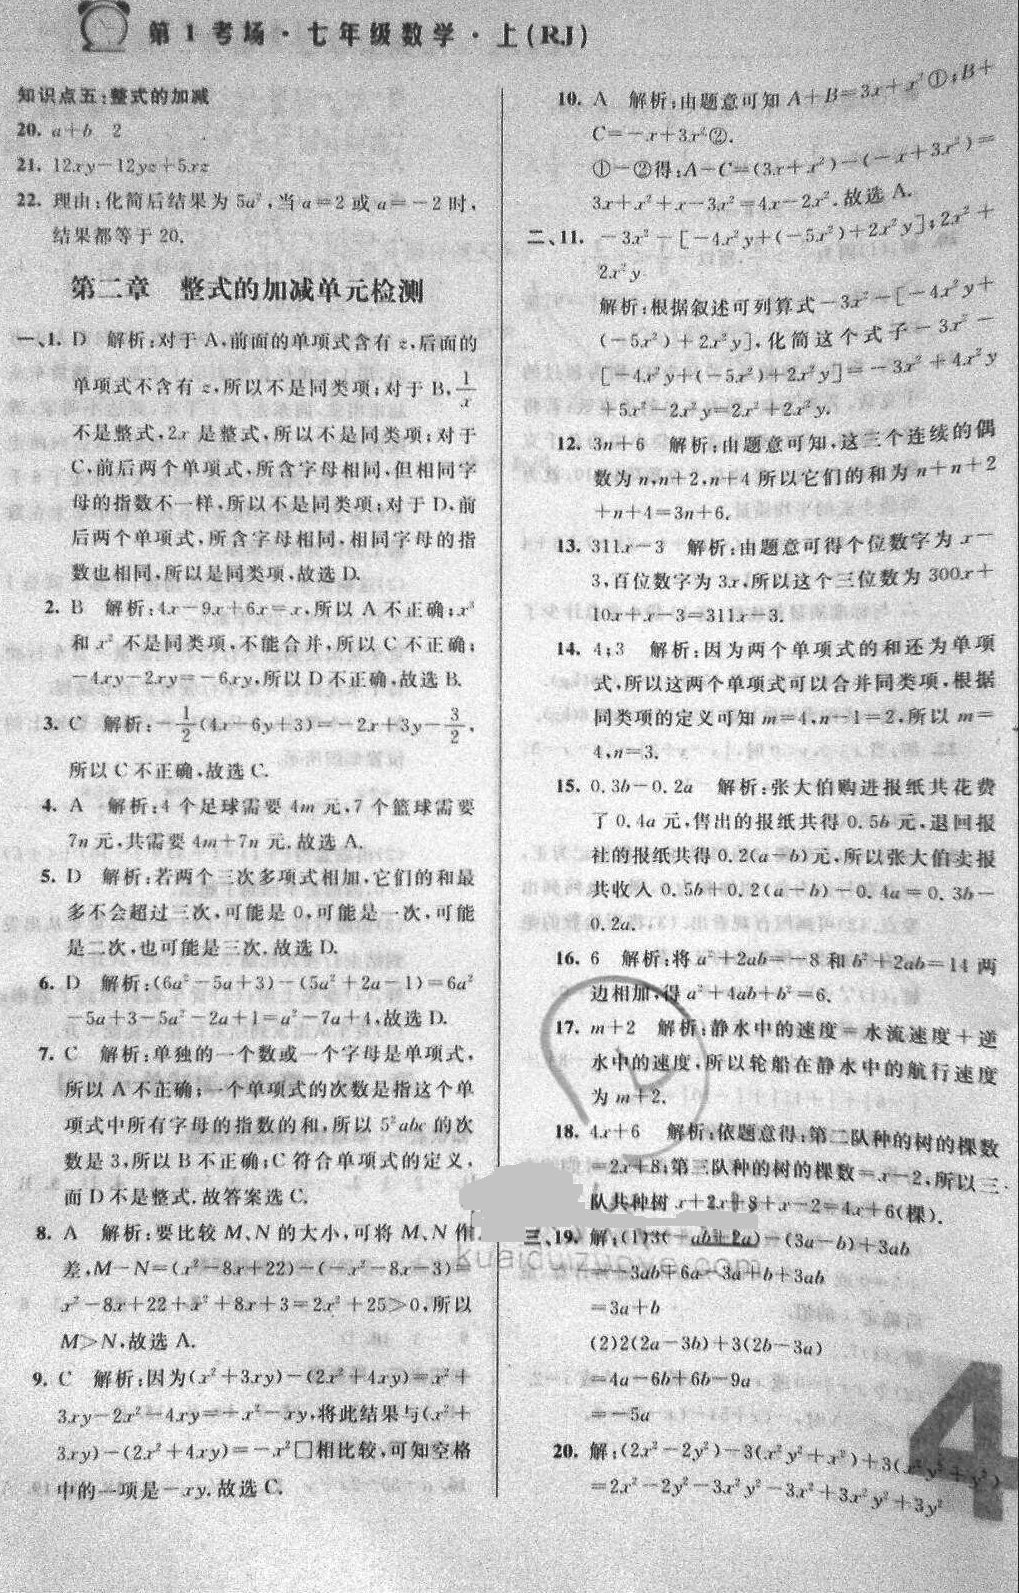 第1考场·七年级数学·上(RJ)
知识点五:整式的加减
20. a+b 2
21. 12xy-12yz+5xz
22. 理由:化简后结果为 5a²,当 a=2 或 a=-2 时,
结果都等于 20.
第二章 整式的加减单元检测
一、1. D 解析:对于 A,前面的单项式含有 z,后面的
单项式不含有 z,所以不是同类项;对于 B, 1/x
不是整式,2x 是整式,所以不是同类项;对于
C,前后两个单项式,所含字母相同,但相同字
母的指数不一样,所以不是同类项;对于 D,前
后两个单项式,所含字母相同,相同字母的指
数也相同,所以是同类项,故选 D.
2. B 解析:4x-9x+6x=x,所以 A 不正确;x³
和 x² 不是同类项,不能合并,所以 C 不正确;
-4xy-2xy=-6xy,所以 D 不正确,故选 B.
3. C 解析:-1/2(4x-6y+3)=-2x+3y-3/2,
所以 C 不正确,故选 C.
4. A 解析:4 个足球需要 4m 元,7 个篮球需要
7n 元,共需要 4m+7n 元.故选 A.
5. D 解析:若两个三次多项式相加,它们的和最
多不会超过三次,可能是 0,可能是一次,可能
是二次,也可能是三次.故选 D.
6. D 解析:(6a²-5a+3)-(5a²+2a-1)=6a²
-5a+3-5a²-2a+1=a²-7a+4,故选 D.
7. C 解析:单独的一个数或一个字母是单项式,
所以 A 不正确;一个单项式的次数是指这个单
项式中所有字母的指数的和,所以 5²abc 的次
数是 3,所以 B 不正确;C 符合单项式的定义,
而 D 不是整式.故答案选 C.
8. A 解析:要比较 M、N 的大小,可将 M、N 作
差,M-N=(x²-8x+22)-(-x²-8x-3)=
x²-8x+22+x²+8x+3=2x²+25>0,所以
M>N,故选 A.
9. C 解析:因为(x²+3xy)-(2x²+4xy)=x²+
3xy-2x²-4xy=-x²-xy,将此结果与(x²+
3xy)-(2x²+4xy)=-x²□相比较,可知空格
中的一项是-xy.故选 C.
10. A 解析:由题意可知 A+B=3x+x²①;B+
C=-x+3x²②.
①-②得:A-C=(3x+x²)-(-x+3x²)=
3x+x²+x-3x²=4x-2x².故选 A.
二、11. -3x²-[-4x²y+(-5x²)+2x²y];2x²+
2x²y
解析:根据叙述可列算式-3x²-[-4x²y+
(-5x²)+2x²y],化简这个式子-3x²-
[-4x²y+(-5x²)+2x²y]=-3x²+4x²y
+5x²-2x²y=2x²+2x²y.
12. 3n+6 解析:由题意可知,这三个连续的偶
数为 n,n+2,n+4 所以它们的和为 n+n+2
+n+4=3n+6.
13. 311x-3 解析:由题意可得个位数字为 x-
3,百位数字为 3x,所以这个三位数为 300x+
10x+x-3=311x-3.
14. 4;3 解析:因为两个单项式的和还为单项
式,所以这两个单项式可以合并同类项,根据
同类项的定义可知 m=4,n-1=2,所以 m=
4,n=3.
15. 0.3b-0.2a 解析:张大伯购进报纸共花费
了 0.4a 元,售出的报纸共得 0.5b 元,退回报
社的报纸共得 0.2(a-b)元,所以张大伯卖报
共收入 0.5b+0.2(a-b)-0.4a=0.3b-
0.2a.
16. 6 解析:将 a²+2ab=-8 和 b²+2ab=14 两
边相加,得 a²+4ab+b²=6.
17. m+2 解析:静水中的速度=水流速度+逆
水中的速度,所以轮船在静水中的航行速度
为 m+2.
18. 4x+6 解析:依题意得:第二队种的树的棵数
=2x+8;第三队种的树的棵数=x-2,所以三
队共种树 x+2x+8+x-2=4x+6(棵).
三、19. 解:(1)3(-ab+2a)-(3a-b)+3ab
=-3ab+6a-3a+b+3ab
=3a+b
(2)2(2a-3b)+3(2b-3a)
=4a-6b+6b-9a
=-5a
20. 解:(2x²-2y²)-3(x²y²+x²)+3(x²y²+y²)
=2x²-2y²-3x²y²-3x²+3x²y²+3y²
4